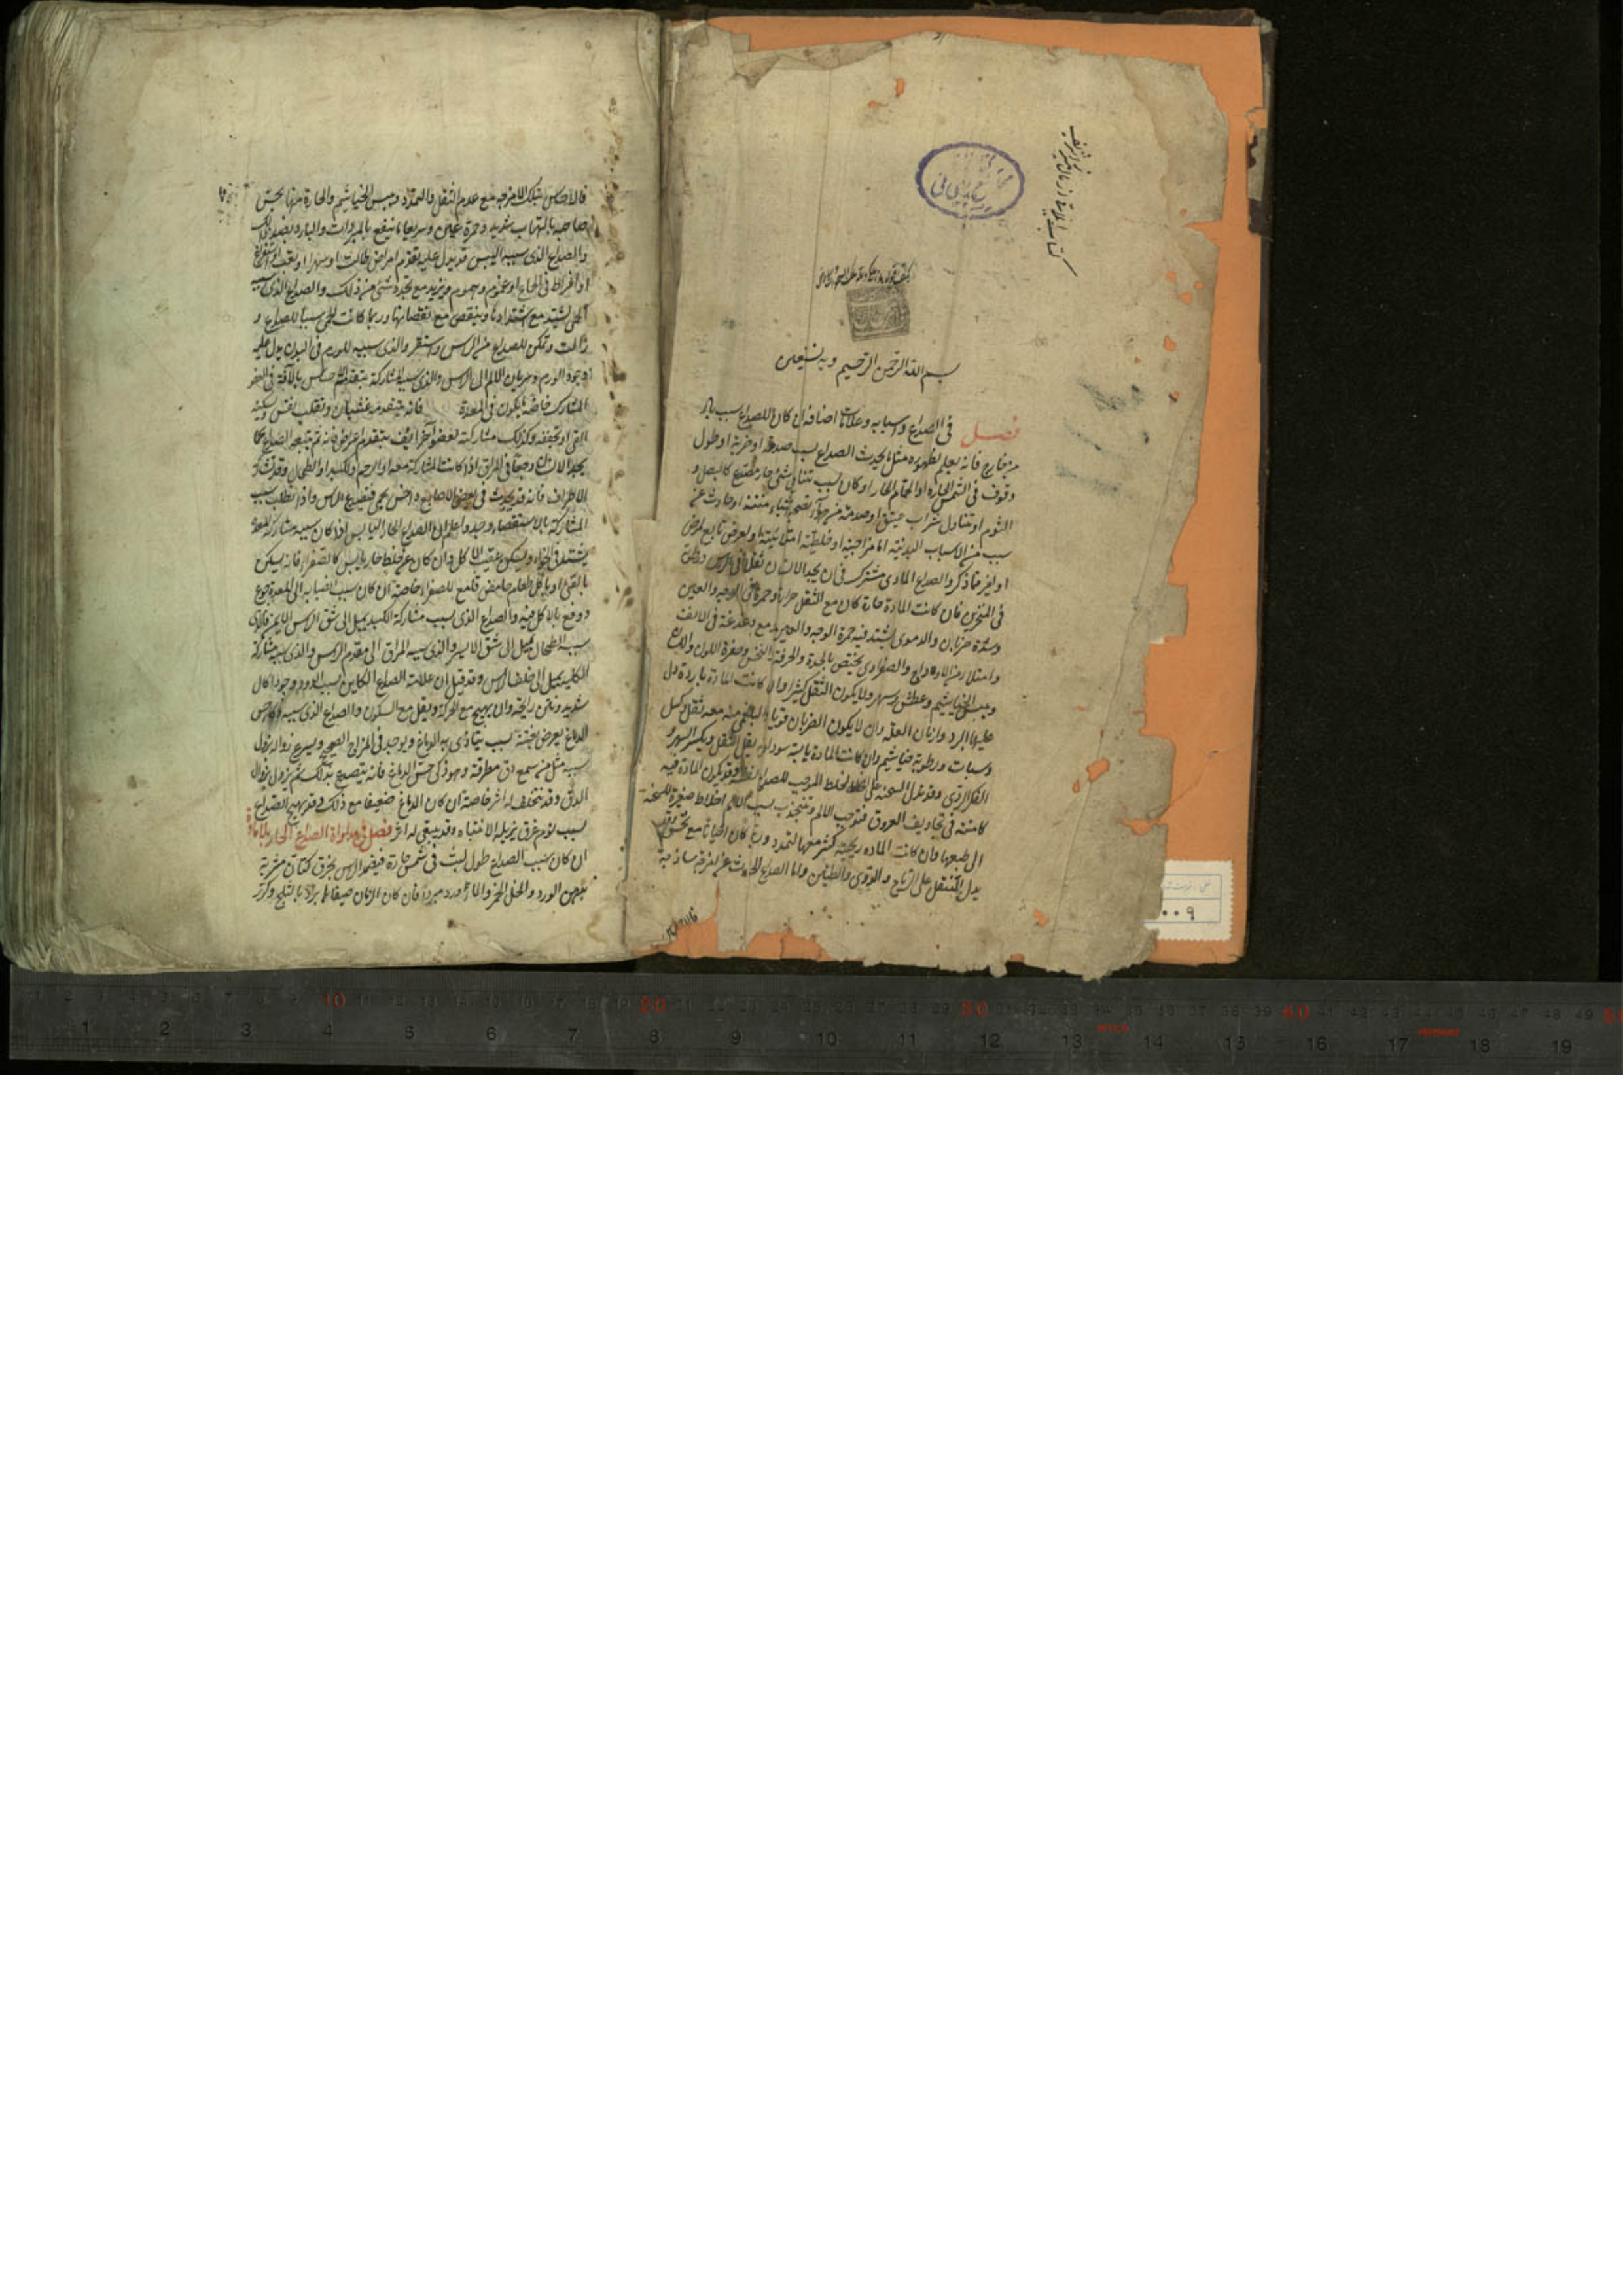 بسم الله الرحمن الرحیم وبه نستعین
فصل فی الصداع واسبابه وعلاماتا اصنافه ان کان للصداع سبب باد
من خارج فانه یعلم بظهوره مثل ما یحدث الصداع بسبب صدمة او ضربة او طول
وقوف فی الشمس الحارة او الحمام الحار او کان بسبب تناول شئ حار مصدع کالبصل و
الثوم او تناول شراب عتیق او صدمة من
سبب من الاسباب البدنیة اما مزاجیة او خلطیة امتلائیة او لعرض تابع لمرض
او لغیر ما ذکر والصداع المادی مشترک فی ان یجد الانسان ثقلا فی الراس
فی المنخرین فان کانت المادة حارة کان مع الثقل حرارة وحمرة فی الوجه والعین
وشدة ضربان والدموی یشتد فیه حمرة الوجه والعین مع دغدغة فی الانف
وامتلاء من الاوداج والصفراوی یختص بالحدة والحرقة والنخس وصفرة اللون
ویبس الخیاشیم وعطش وسهر ولا یکون الثقل کثیرا وان کانت المادة باردة دل
علیها البرد وازمان العلة وان لا یکون الضربان قویا والبلغمی منه معه ثقل وکسل
وسبات ورطوبة خیاشیم وان کانت المادة یابسة سوداویة یقل الثقل ویکثر السهر و
الفکر الردی وقد تدل السحنة علی الخلط الموجب للصداع وقد یکون المادة فیه
کامنة فی تجاویف العروق فتوجب الالم وتنجذب بسبب الالم اخلاط
الی طبعها وان کانت المادة ریحیة کثر معها التمدد وربما کان
یدل المتنقل علی الریاح والدوی والطنین واما الصداع الحادث عن امزجة ساذجة
فالاحساس بتلک الامزجة مع عدم الثقل والتمدد ویبس الخیاشیم والحارة منها یحس
صاحبه بالتهاب شدید وحمرة عین وسریعا ما ینفع بالمبردات والبارد بضد ذلک
والصداع الذی سببه الیبس قد یدل علیه تقدم امراض طالت او سهر او تعب او استفراغ
او افراط فی الجماع او غموم وهموم ویزید مع تجدد شئ من ذلک والصداع الذی سببه
الحمی یشتد مع اشتدادها وینقص مع نقصانها وربما کانت الحمی سببا للصداع و
زالت وتمکن الصداع من الراس واستقر والذی سببه الورم فی البدن یدل علیه
وجود الورم وسریان الالم الی الراس والذی سببه المشارکة یتقدمه احساس بالآفة فی العضو
المشارک خاصة ما یکون فی المعدة فانه یتقدمه غثیان وتقلب نفس ویسکنه
القئ او یخففه وکذلک مشارکة لعضو آخر ایضا یتقدم اعراض فانه ثم یتبعه الصداع کما
یجد الانسان وجعا فی المراق اذا کانت المشارکة معه او الرحم او الکبد او الطحال
الاطراف فانه قد یحدث فی بعض الاصابع داحس یحمی فیصدع الراس واذا تطلب سبب
المشارکة بالاستقصاء وجد واعلم ان الصداع الحار الیابس اذا کان سببه مشارکة المعدة
یشتد فی الخواء ویسکن عقیب الاکل وان کان عن خلط حار یابس کالصفراء فانه یسکن
بالقئ او باکل طعام حامض قامع للصفراء خاصة ان کان سبب انصبابه الی المعدة جوع
دوفع بالاکل منه والصداع الذی بسبب مشارکة الکبد یمیل الی شق الراس الایمن والذی
سببه الطحال یمیل الی شق الایسر والذی سببه المراق الی مقدم الراس والذی سببه مشارکة
الکلیة یمیل الی خلف الراس وقد قیل ان علامة الصداع الکاین بسبب الدود وجود اکال
شدید ونتن رایحة وان یهیج مع الحرکة ویقل مع السکون والصداع الذی سببه ذکاء حس
الدماغ یعرض بغتة بسبب یتاذی به الدماغ ویوجد فی المزاج الصحیح ویسرع زواله بزوال
سببه مثل من سمع دق مطرقة وهو ذکی حس الدماغ فانه یتصدع بذلک ثم یزول بزوال
الدق وقد یتخلف له اثر خاصة ان کان الدماغ ضعیفا مع ذلک وقد یهیج الصداع
بسبب نوم غرق یزیله الانتباه وقد یبقی له اثر فصل فی مداواة الصداع الحار بلا مادة
ان کان سبب الصداع طول لبث فی شمس حارة فیضمد الراس بخرق کتان مشربة
بدهن الورد والخل الخمر والماء ورد مبردا فان کان الزمان صیفا ما یبرد بالثلج وکرر